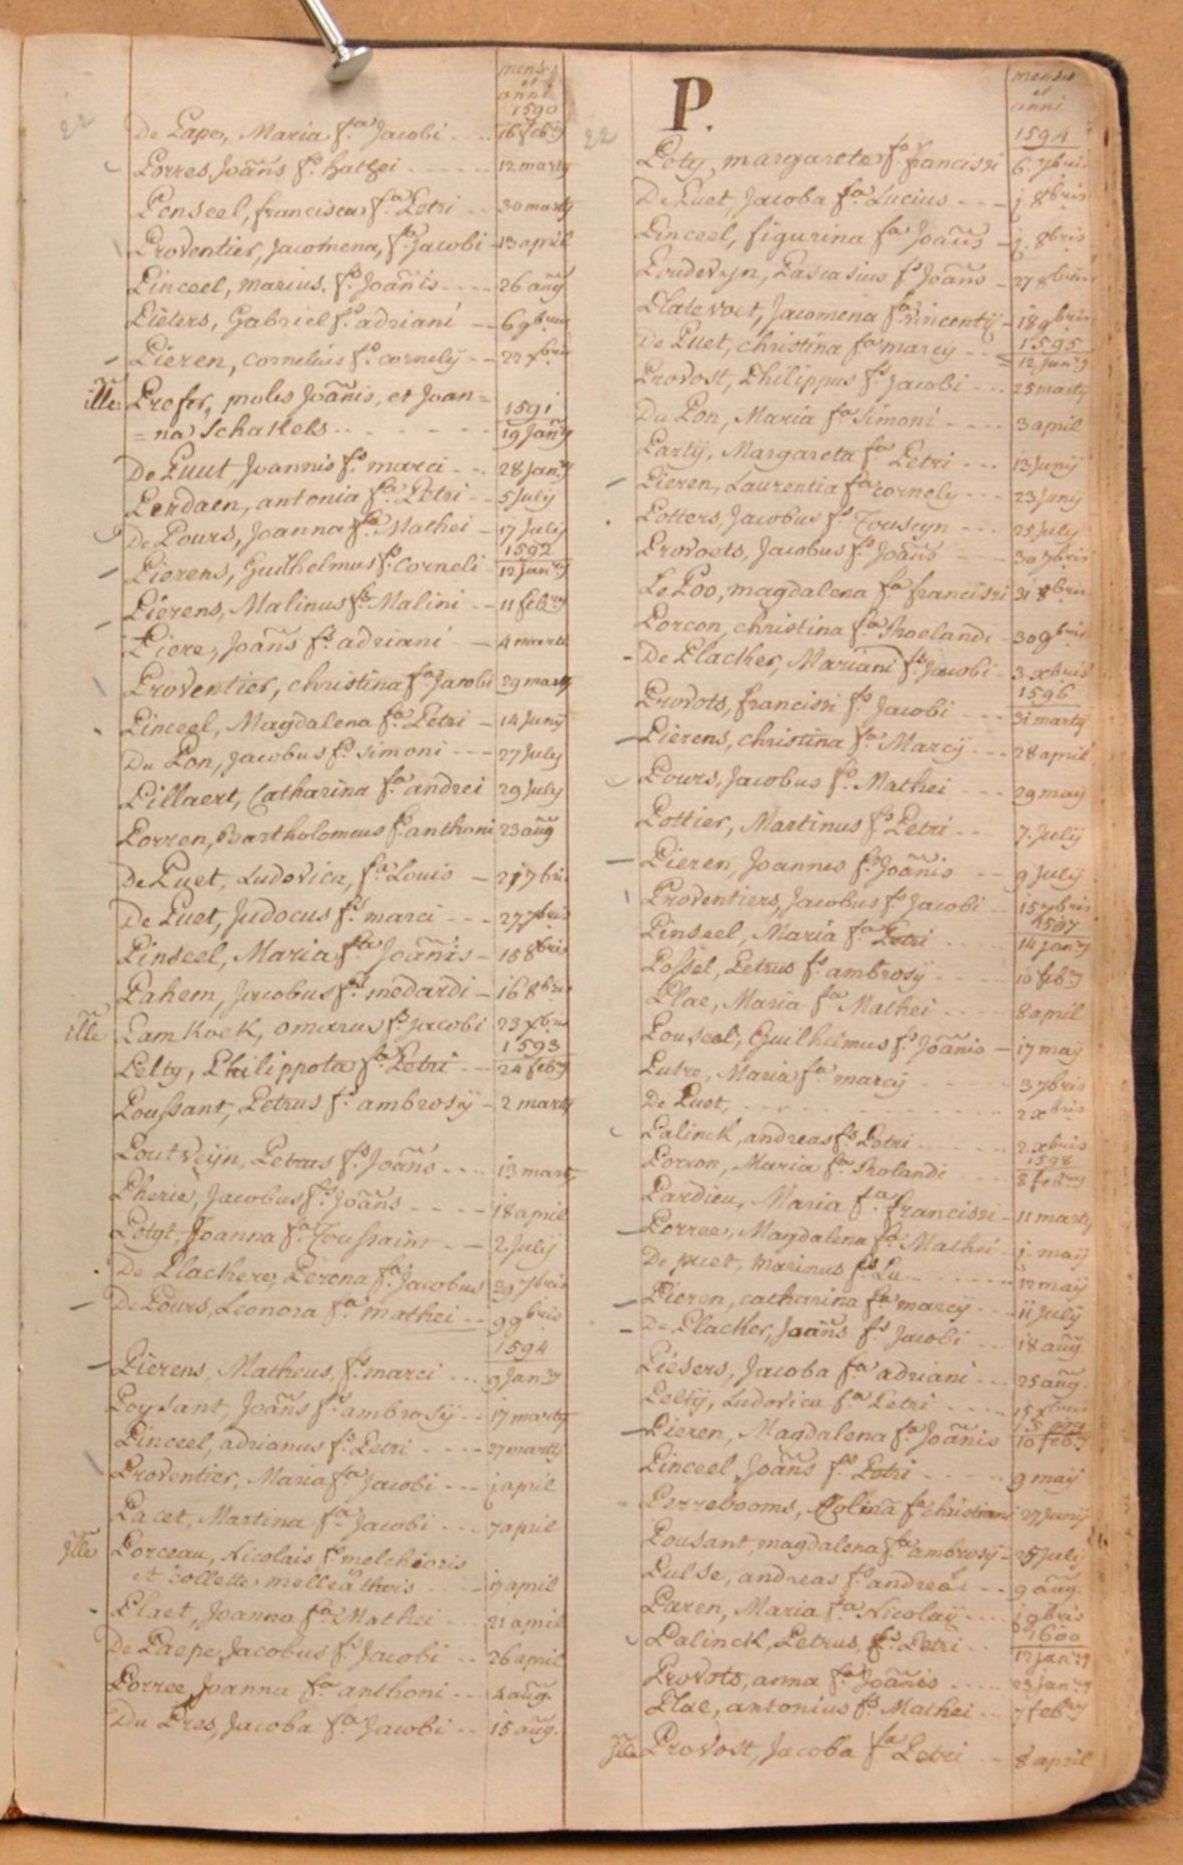 22
mensis et anni
1590
De Pape, Maria fa. Jacobi 16 feb.y
Porres, Joañis fs. Mathei 12 marty
Penseel, francisca fa. Petri 30 marty
Proventier, Jacomena, fa. Jacobi 13 april
Pinceel, marius, fs. Joañis 26 aug
Pieters, Gabriel fs. adriani 6 9bris
Pieren, Cornelius fs. cornely xbris
ille Profer, proles Joãnis, et Joan=
1591
=na Schakels 19 Jan.y
De Puut, Joannis fs. marci 28 Jan.y
Perdaen, antonia fa. Petri 5 July
De Pours, Joanna fa. Mathei 17 July
1592
Pierens, Guilhelmus fs. Corneli 12 Jan.y
Pierens, Malinus fs. Malini 11 feb.y
Piere, Joañs fs. adriani 4 marti
Proventier, christina fa. Jacobi 29 marty
Pinceel, Magdalena fa. Petri 14 Juny
Du Pon, Jacobus fs. Simoni 27 July
Pillaert, Catharina fa. andrei 29 July
Porren, Bartholomeus fs. anthoni 23 aug
De Puet, Ludovica, fa. Louis 7bris
De Puet, Judocus fs. marci 27 7bris
Pinseel, Maria fa. Joañis 15 8bris
Pahem, Jacobus fs. medardi 16 8bris
ille Pamkoek, omarus fs. Jacobi 23 xbris
1593
Pelty, Philippota fa. Petri 24 feb.y
Poussant, Petrus fs. ambrosÿ 2 marty
Poutveijn, Petrus fs. Joañs 13 marty
Pherie, Jacobus fs. Joañs 18 april
Potyt, Joanna fa. Toussains 2 July
De Plackere, Perona fa. Jacobus 29 7bris
De Pours, Leonora fa. mathei 9 9bris
1594
Pierens, Matheus, fs. marci 9 Jan.y
Poysant, Joañs fs. ambrosÿ 17 marty
Pinceel, adrianus fs. Petri 27 marty
Proventier, Maria fa. Jacobi j april
Pacet, Martina fa. Jacobi 7 april
ille Porceau, Nicolais fs. melchioris
et collette 17 april
Plaet, Joanna fa. Mathei 21 april
De Paepe, Jacobus fs. Jacobi 26 april
Porree, Joanna fa. anthoni 4 aug.
Du Pres, Jacoba fa. Jacobi 15 aug.
22
P.
mensis et anni
1594
Poty, margareta fa. francisci 6. 7bris
De Puet, Jacoba fa. Lucius j 8bris
Pinceel, figurina fa. Joañs j. 8bris
Poudevyn, Pascasius fs. Joañs 27 8bris
Platevoet, Jacomena fa. vincentÿ 18 9bris
1595
De Puet, christina fa. marcÿ 12 Jan.y
Provost, Philippus fs. Jacobi 25 marty
Du Pon, Maria fa. Simoni 3 april
Partÿ, Margareta fa. Petri 13 Junÿ
Pieren, Laurentia fa. cornely 23 Juny
Potters, Jacobus fs. 25 July
Provoets, Jacobus fs. Joañs 30 7bris
Le Poo, magdalena fa. francisci 31 8bris
Porcon, christina fa. Roelandi 30 9bris
De Placker, Mariani fs. Jacobi 3 xbris
1596
Provots, francisci fs. Jacobi 31 marty
Pierens, christina fa. Marcÿ 28 april
Pours, Jacobus fs. Mathei 29 maÿ
Pottier, Martinus fs. Petri 7. July
Pieren, Joannes fs. Joãnis 9 July
Proventiers, Jacobus fs. Jacobi 15 7bris
1597
Pinseel, Maria fa. Petri 14 Jan.y
Possel, Petrus fs. ambrosÿ 10 feb.y
Plae, Maria fa. Mathei 8 april
Pouseel, Guilhelmus fs. Joãnis 17 maÿ
Putre, Maria fa. marcÿ 3 7bris
De Puet, 2 xbris
Palinck, andreas fs. Petri 2 xbris
1598
Porron, Maria fa. Rolandi 8 feb.y
Pardieu, Maria fa. francisci 11 marty
Porree, Magdalena fa. Mathei j. maÿ
De puet, marinus fs. Lu 17 maÿ
Pieren, catharina fa. marcÿ 11 July
De Placker, Joañs fs. Jacobi 18 aug
Piesers, Jacoba fa. adriani 25 aug.
Peltÿ, Ludovica fa. Petri 15 xbris
Pieren, Magdalena fa. Joãnis 10 feb.y
Pinceel, Joañs fs. Petri 9 maÿ
Perrebooms, Colina fa. christiani 27 Junÿ
Pousant, magdalena fa. ambrosÿ 25 July
Pulse, andreas fs. andreas 9 aug.
Paren, Maria fa. Nicolaÿ j 9bris
1600
Palinck, Petrus, fs. Petri 17 Jan.y
Provots, anna fa. Joãnis 23 Jan.y
Plae, antonius fs. Mathei 7 feb.y
ille Provost, Jacoba fa. Petri 8 april